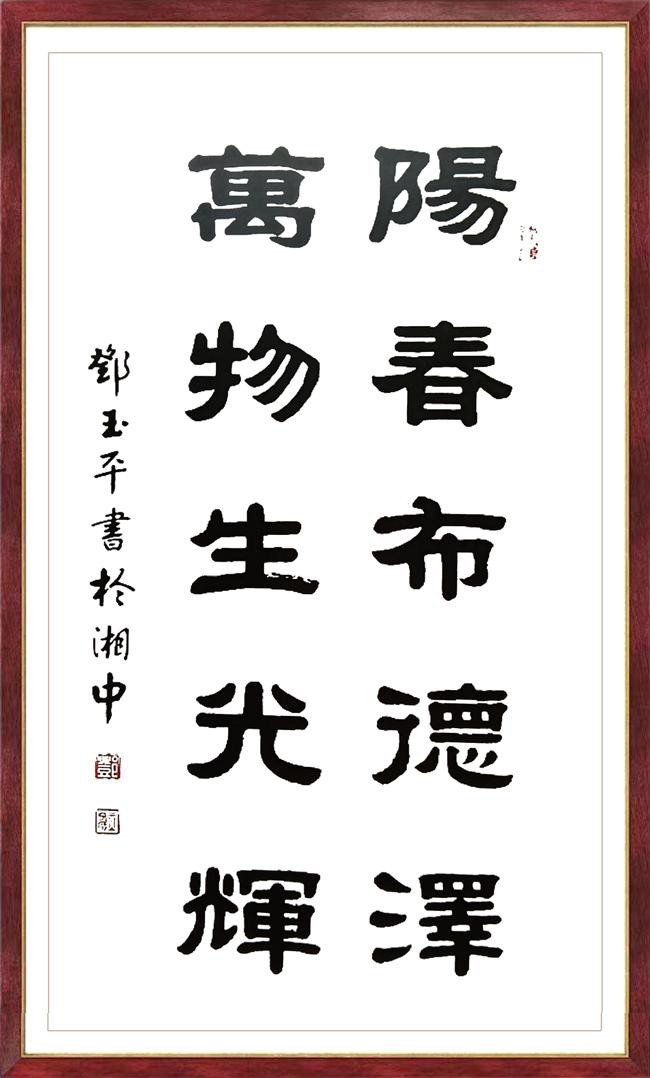 陽春布德澤
萬物生光輝
鄧玉平書於湘中